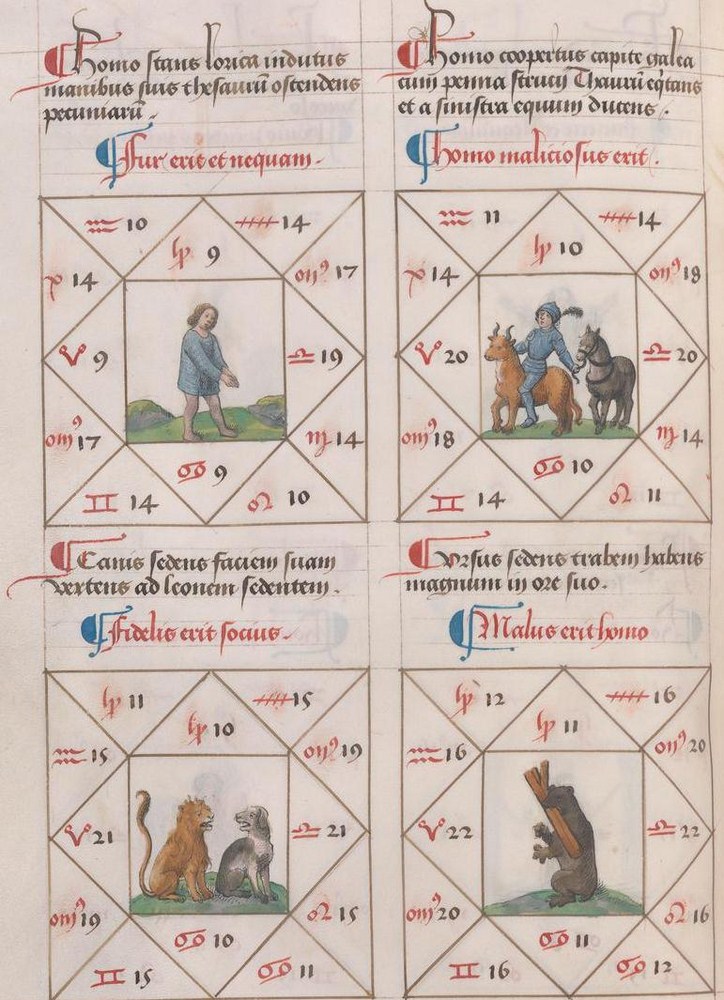 Homo stans lorica indutus
manibus suis thesaurū ostendens
pecuniarū.
Fur erit et nequam.
♒ 10
14
9
♓ 14
17
♈ 9
♎ 19
17
♏ 14
♋ 9
♊ 14
♌ 10
Homo coopertus capite galea
cum penna strucij Thaurū eq̄tans
et a sinistra equum ducens.
Homo maliciosus erit.
♒ 11
14
10
♓ 14
18
♈ 20
♎ 20
18
♏ 14
♋ 10
♊ 14
♌ 11
Canis sedens faciem suam
vertens ad leonem sedentem.
Fidelis erit socius.
11
15
10
♒ 15
19
♈ 21
♎ 21
19
♌ 15
♋ 10
♊ 15
♋ 11
Vrsus sedens trabem habens
magnum in ore suo.
Malus erit homo
12
16
11
♒ 16
20
♈ 22
♎ 22
20
♌ 16
♋ 11
♊ 16
♋ 12